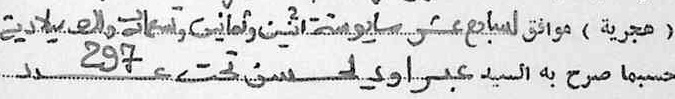 ( هجرية ) موافق لسابع عشر مايو سنة اثنين وثمانين وتسعمائة والف ميلادية
حسبما صرح به السيد عبراوي لحسن تحت عدد 297